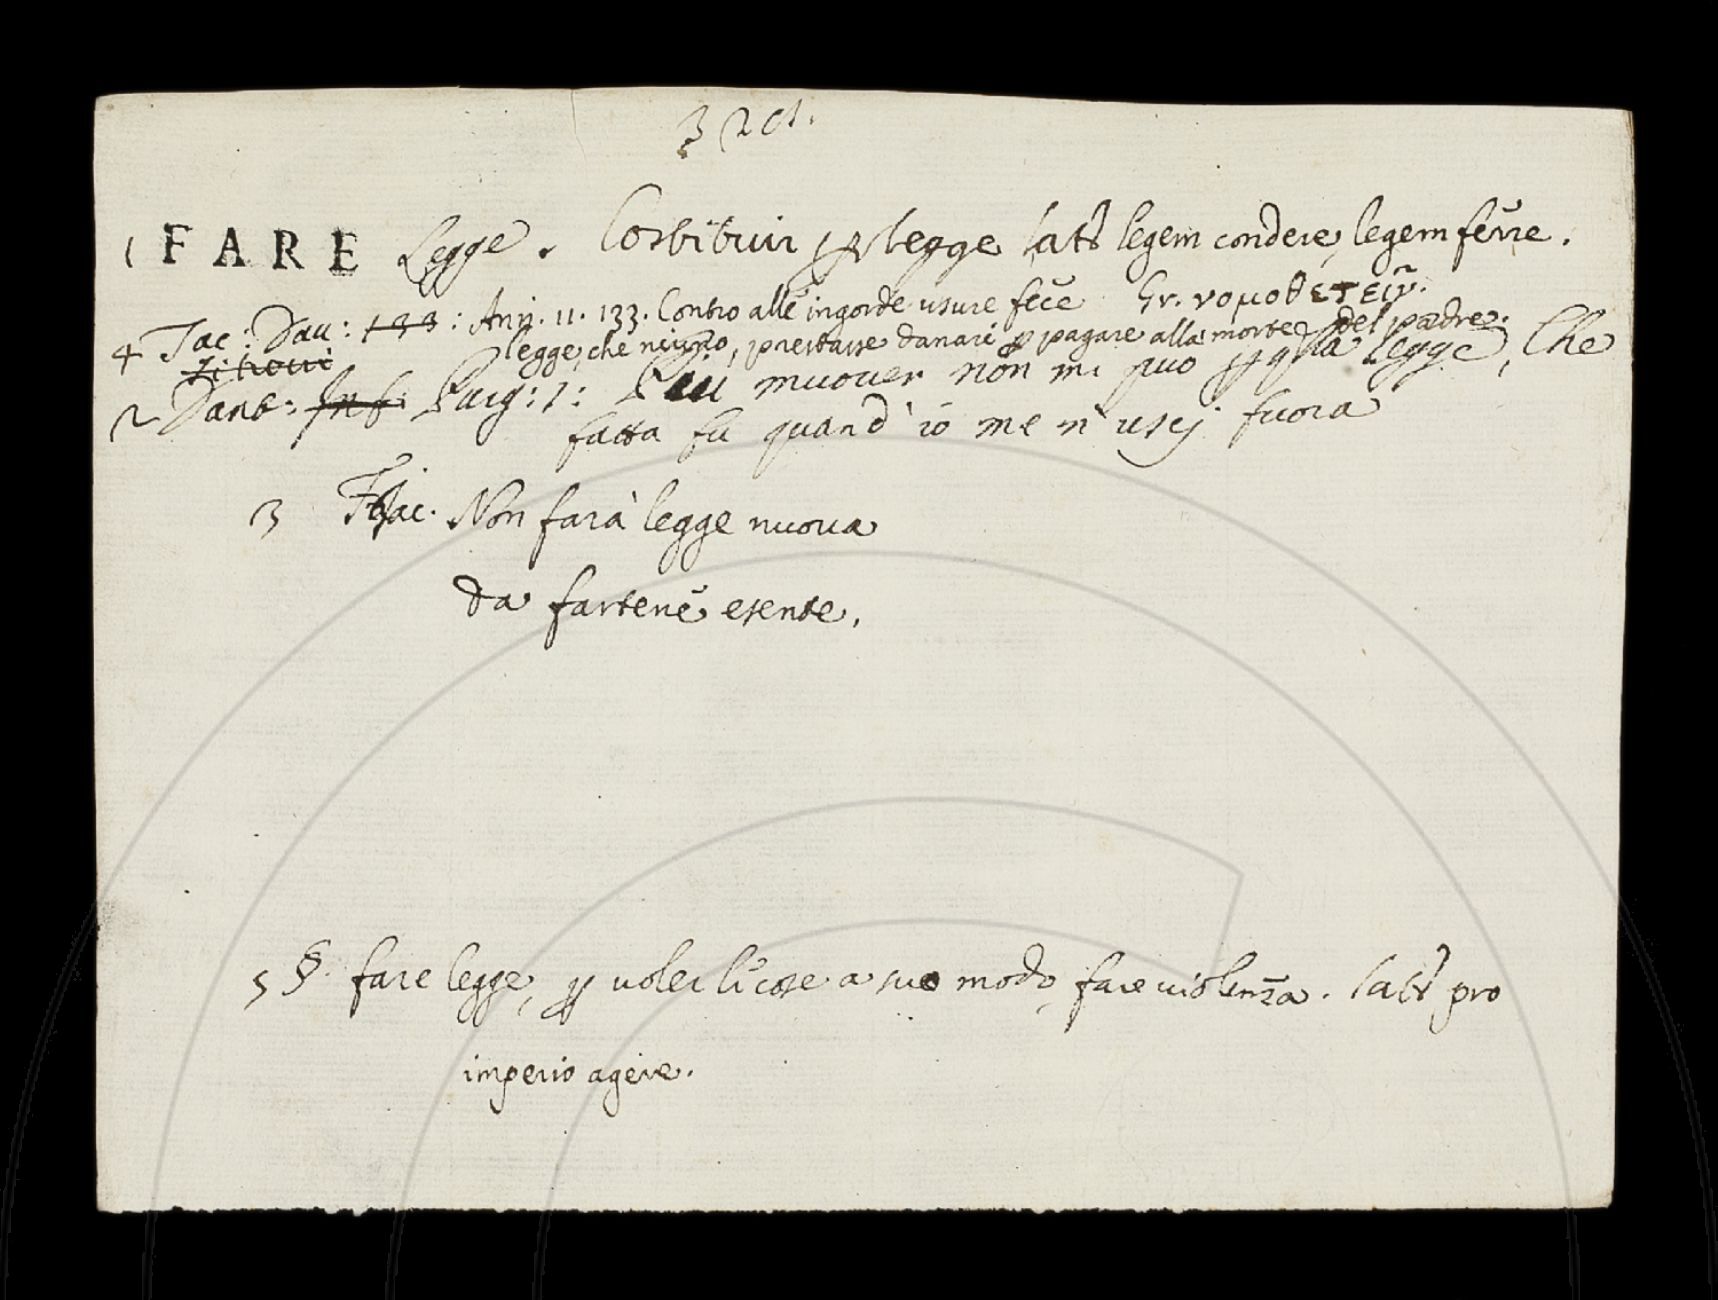 3201.
1 FARE Legge. Costituir ꝑ legge Latᵗ legem condere, legem ferre.
4 Tac: Dau: 133: Ann. 11. 133. Contro alle ingorde usure fece Gr. νομοθετεῖν.
legge, che niuno, prestasse danari ꝑ pagare alla morte del padre.
2 Dant: Inf: Purg: 1: Piu muouer non mi puo ꝑ qlla legge, Che
fatta fu quand' io me n' uscj fuora
3 Non farà legge nuova
da fartene esente.
5 §. fare legge, ꝑ uoler le cose a suo modo, fare uiolenza. Latᵗ pro
imperio agere.